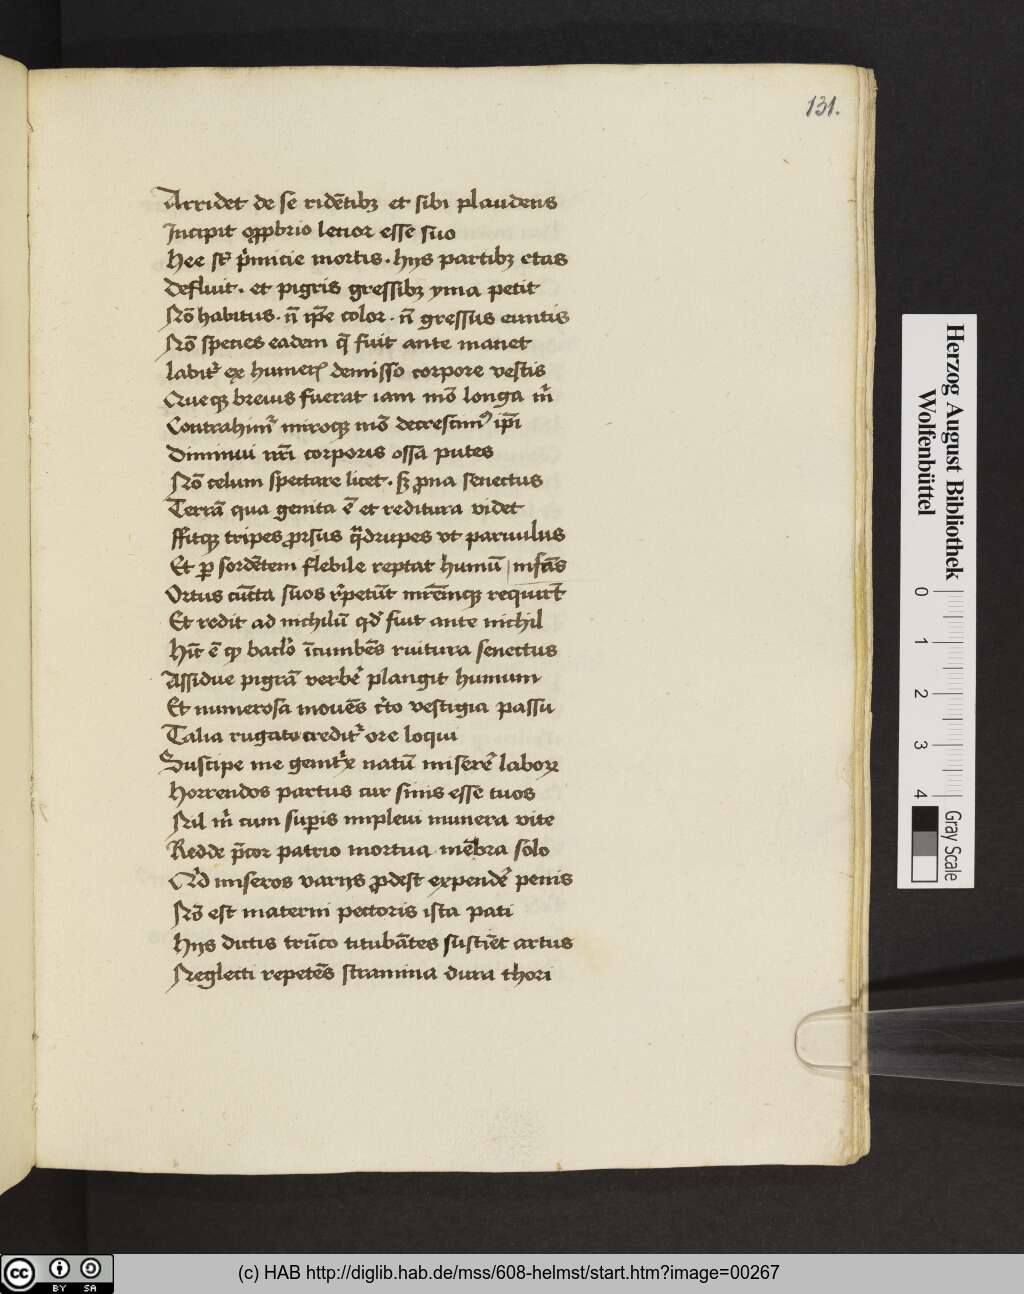 131.
Arridet de se ridētibꝫ et sibi plaudens
Incipit opp̱brio letior esse suo
Hee st̄ p̄micie mortis · hijs partibꝫ etas
defluit · et pigris gressibꝫ yma petit
Nō habitus · n̄ ip̄e color · n̄ gressus euntis
Nō species eadem q̄ fuit ante manet
labit᷑ ex humeꝝ demisso corpore vestis
Queqꝫ breuis fuerat iam mō longa m̄
Contrahim᷑ miroqꝫ mō decrescimꝰ ip̄i
diminui nr̄i corporis ossa putes
Nō celum spectare licet · sꝫ ꝓna senectus
Terrā qua genita ē et reditura videt
ffitqꝫ tripes ꝓrsus q̄drupes vt paruulus
Et ꝑ sordētem flebile reptat humū | infās
Ortus cūcta suos r̄petūt mr̄emqꝫ requir̄t
Et redit ad nichilū qd̓ fuit ante nichil
Hīc ē ꝙ baclo᷑ īcumbēs ruitura senectus
Assidue pigrā verbe᷑ plangit humum
Et numerosa mouēs c̄to vestigia passu
Talia rugato credit᷑ ore loqui
Suscipe me genit᷑x natū misere᷑ laboꝝ
Horrendos partus cur sinis esse tuos
Nil m̄ cum sup̱is impleui munera vite
Redde p̄cor patrio mortua mēbra solo
Qd̓ miseros varijs ꝓdest expende᷑ penis
Nō est materni pectoris ista pati
Hijs dictis trūco titubātes sustīet artus
Neglecti repetēs stramina dura thori
Herzog August Bibliothek
Wolfenbüttel
0 1 2 3 4
Gray Scale
cc BY SA
(c) HAB http://diglib.hab.de/mss/608-helmst/start.htm?image=00267